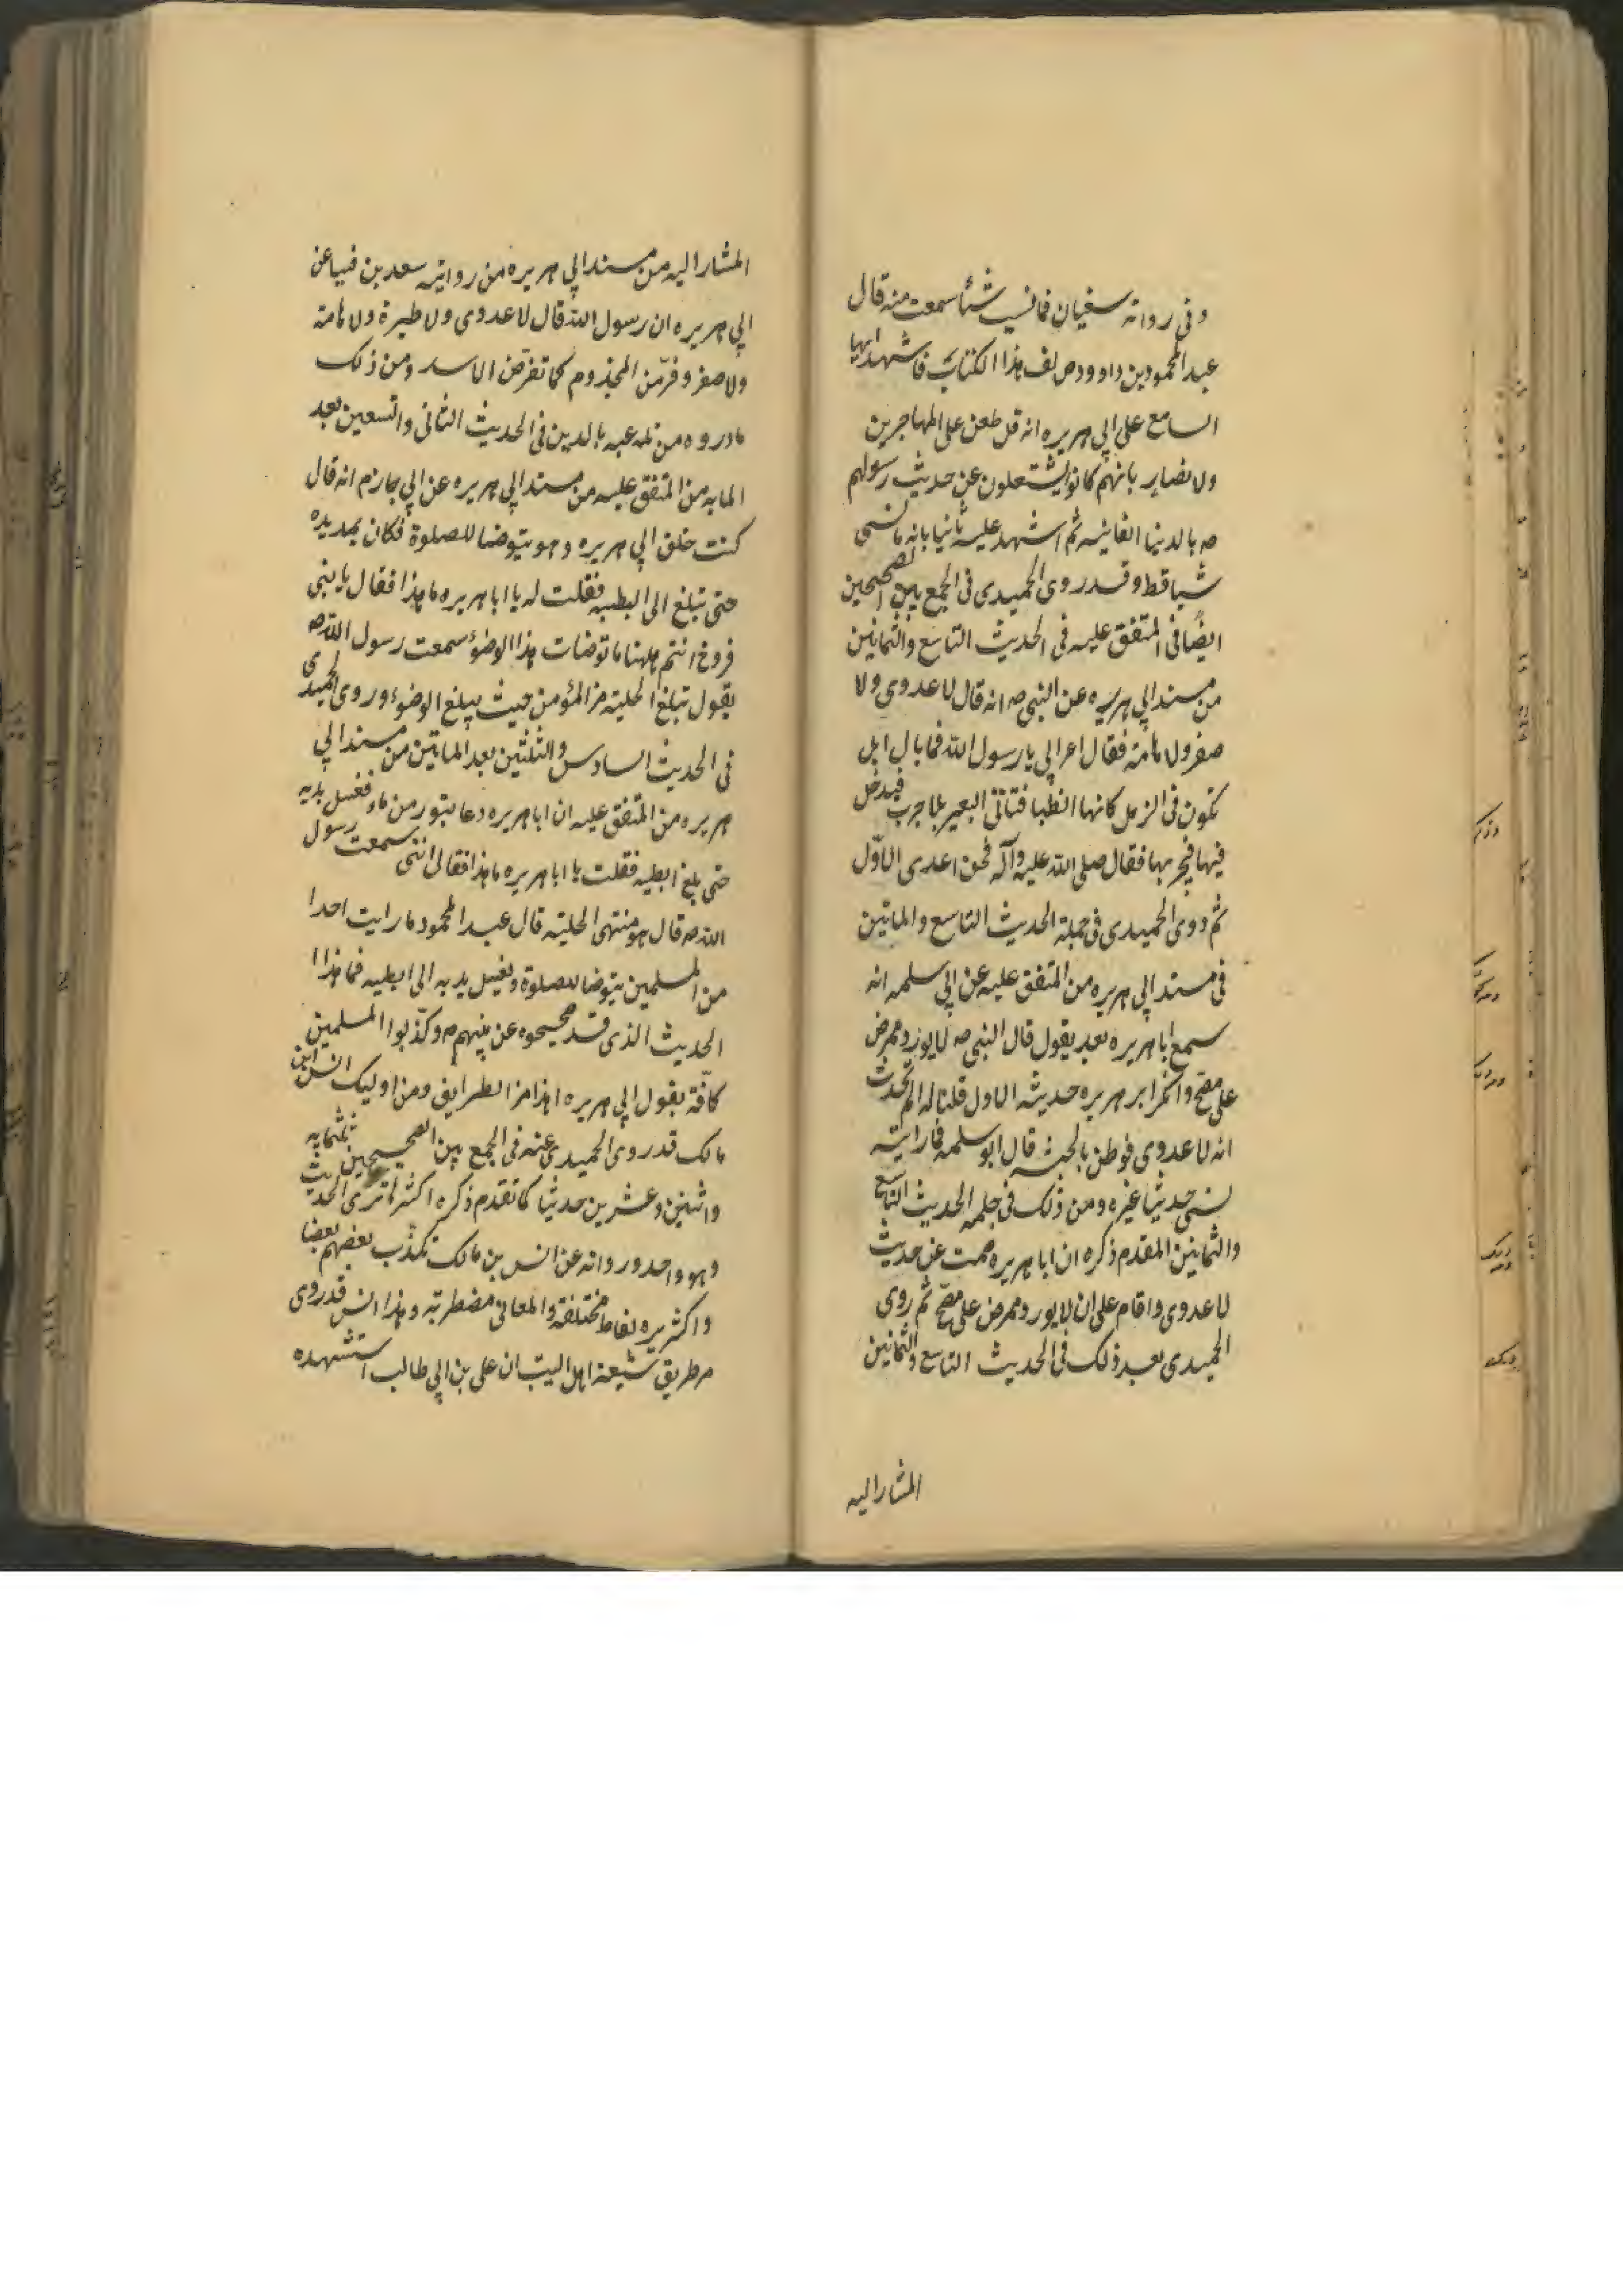 وفى رواته سفيان فما نسيت شئا سمعت منه قال
عبد المحمود بن داوود مولف هذا الكتاب فاشهد ايها
السامع على ابى هريره انه قل طعن على المهاجرين
ولانصار بانهم كانوا يشتغلون عن حديث رسولهم
صه بالدنيا الفانيه ثم اشهد عليه ثانيا بانه ما نسى
شيا قط وقد روى الحميدى فى الجمع بين الصحيحين
ايضًا فى المتفق عليه فى الحديث التاسع والثمانين
من مسند ابى هريره عن النبى صه انه قال لا عدوى ولا
صفر ولا هامة فقال اعرابى يا رسول الله فما بال ابل
تكون فى الرمل كانها الظبا فتاتى البعير الاجرب فيدخل
فيها فيجربها فقال صلى الله عليه وآله فمن اعدى الاوّل
ثم روى الحميدى فى جملة الحديث التاسع والماتين
فى مسند ابى هريره من المتفق عليه عن ابى سلمه انه
سمع ابا هريره بعد يقول قال النبى صه لا يورد ممرض
على مصحّ وانكر ابو هريره حديثه الاول قلنا له الم تحدث
انه لا عدوى فوطن بالحبشه قال ابو سلمه فما رايته
نسى حديثا غيره ومن ذلك فى جلمه الحديث التاسع
والثمانين المقدم ذكره ان ابا هريره صمت عن حديث
لا عدوى واقام على ان لا يورد ممرض على مصحّ ثم روى
الحميدى بعد ذلك فى الحديث التاسع والثمانين
المشار اليه
المشار اليه من مسند ابى هريره من رواية سعد بن عن
ابى هريره ان رسول الله قال لا عدوى ولا طيرة ولا هامة
ولا صفر وفرّ من المجذوم كما تفرّ من الاسد ومن ذلك
مارروه من تلعبه بالدين فى الحديث الثانى والتسعين بعد
المايه من المتفق عليه من مسند ابى هريره عن ابى حازم انه قال
كنت خلف ابى هريره وهو يتوضا للصلوة فكان يمد يده
حتى تبلغ الى ابطيه فقلت له يا ابا هريره ما هذا فقال يا بنى
فروخ انتم هاهنا ما توضات هذا الوضوء سمعت رسول الله صه
يقول تبلغ الحلية من المؤمن حيث يبلغ الوضوء وروى الحميدى
فى الحديث السادس والثلثين بعد الماتين من مسند ابى
هريره من المتفق عليه ان ابا هريره دعا بتور من ماء فغسل يديه
حتى بلغ ابطيه فقلت يا ابا هريره ما هذا فقال انى سمعت رسول
الله صه قال هو منتهى الحلية قال عبد المحمود ما رايت احدا
من المسلمين يتوضا للصلوة ويغسل يديه الى ابطيه فما هذا
الحديث الذى قد صححوه عن نبيهم صه وكذّبوا المسلمين
كافّة بقول ابى هريره هذا من الطرايف ومن اوليك انس ابن
مالك قد روى الحميدى عنه فى الجمع بين الصحيحين ثلثمايه
واثنين وعشرين حديثا كما تقدم ذكره اكثرها ترى الحديث
وهو واحد ورواته عن انس بن مالك يكذّب بعضهم بعضا
واكثر يره لفاظ مختلفة والمعانى مضطربة وهذا انس قد روى
من طريق شيعة اهل البيت ان على بن ابى طالب استشهده